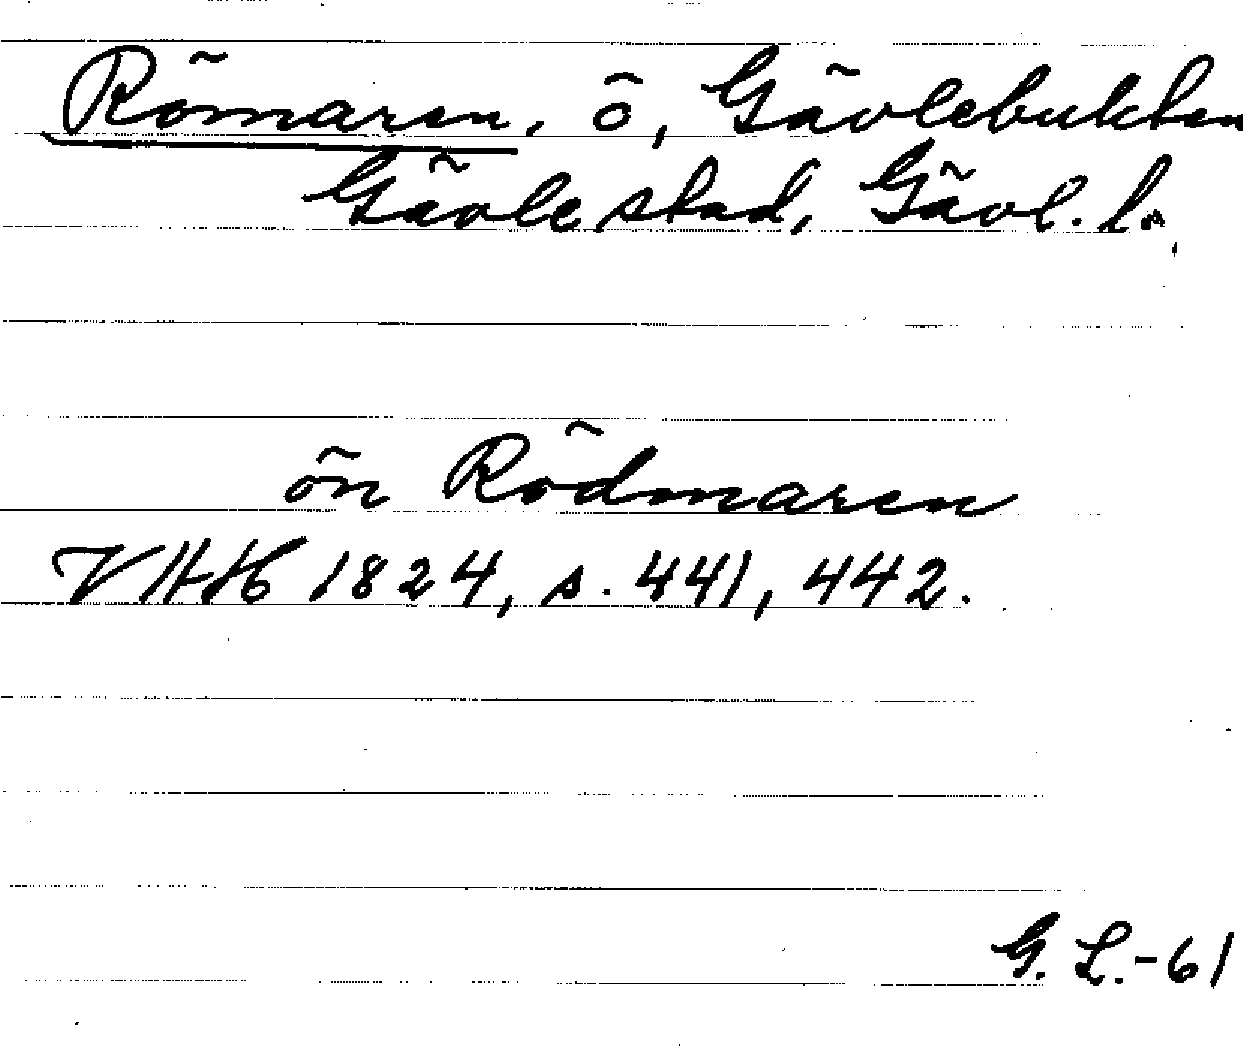 Römaren, ö, Gävlebukten
Gävle stad, Gävl. l.
ön Rödmaren
VHAH 1824, s. 441, 442.
G. L.-61